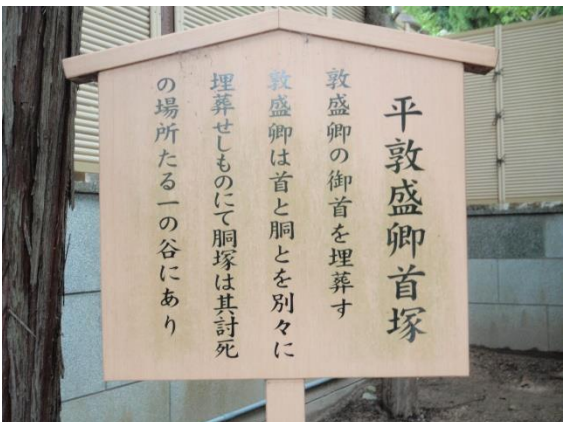 平敦盛卿首塚
敦盛卿の御首を埋葬す
敦盛卿は首と胴とを別々に
埋葬せしものにて胴塚は其討死
の場所たる一の谷にあり